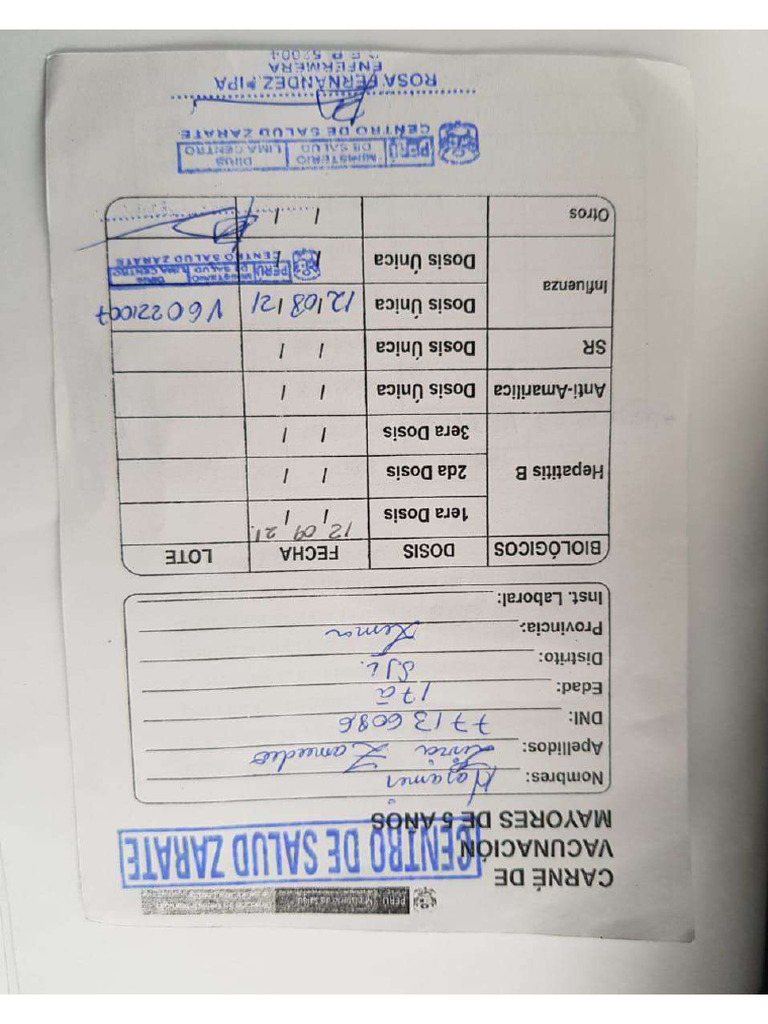 PERÚ Ministerio de Salud
CARNÉ DE
VACUNACIÓN
MAYORES DE 5 AÑOS
CENTRO DE SALUD ZARATE
Nombres:
Apellidos: Zamudio
DNI: 77136086
Edad: 17 a
Distrito: SJL
Provincia: Lima
Inst. Laboral:
BIOLÓGICOS DOSIS FECHA LOTE
Hepatitis B 1era Dosis 12 09 21 / /
2da Dosis / /
3era Dosis / /
Anti-Amarílica Dosis Única / /
SR Dosis Única / /
Influenza Dosis Única 12/08/21 V60221007
Dosis Única / /
PERÚ MINISTERIO DE SALUD DIRIS LIMA CENTRO
CENTRO SALUD ZARATE
Otros / /
PERÚ MINISTERIO DE SALUD DIRIS LIMA CENTRO
CENTRO DE SALUD ZARATE
ROSA FERNANDEZ PIPA
ENFERMERA